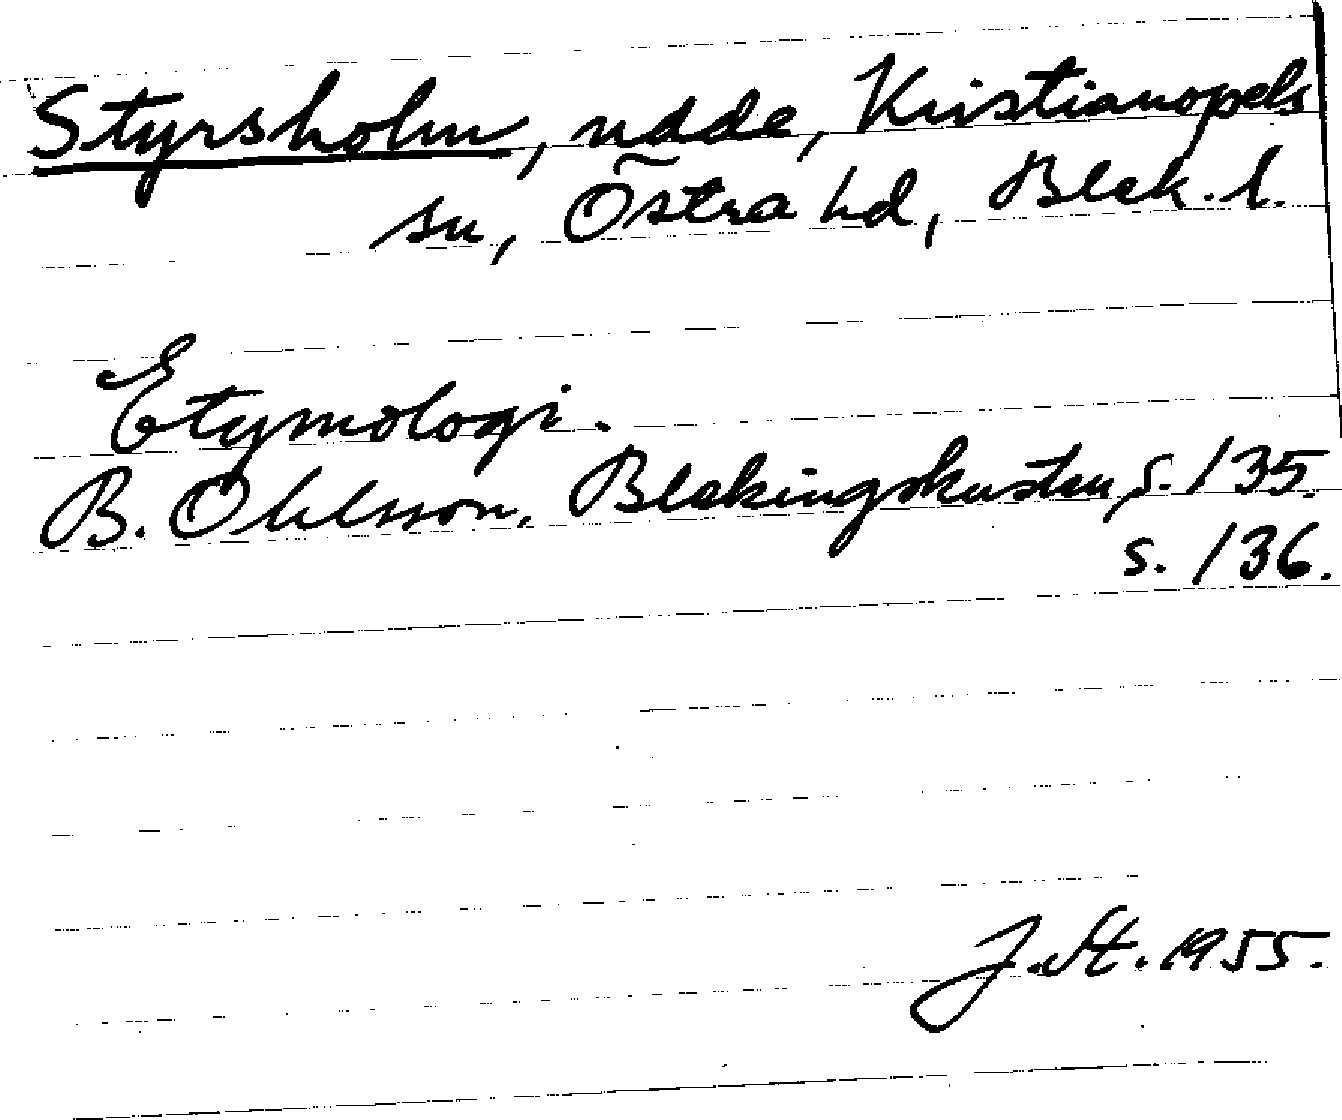 Styrsholm, udde, Kristianopels
sn, Östra hd, Blek. l.
Etymologi.
B. Ohlsson, Blekingskusten, s. 135.
s. 136.
J. St. 1955.